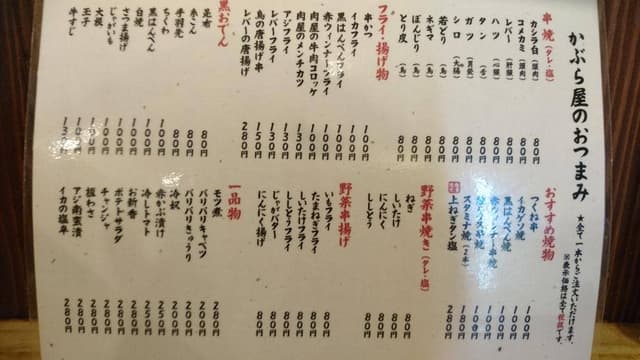 かぶら屋のおつまみ
★全て一本からご注文いただけます。
※表示価格は全て税抜です。
串焼(タレ・塩)
カシラ白(頭肉) 80円
コメカミ(頭肉) 80円
レバー(肝臓) 80円
ハツ(心臓) 80円
タン(舌) 80円
ガツ(胃袋) 80円
シロ(大腸) 80円
若どり(鳥) 80円
ネギマ(鳥) 80円
ぼんじり(鳥) 80円
とり皮(鳥) 80円
フライ・揚げ物
串かつ 100円
イカフライ 100円
黒はんぺんフライ 100円
赤ウィンナーフライ 100円
肉屋の牛肉コロッケ 100円
肉屋のメンチカツ 100円
アジフライ 130円
レバーフライ 130円
鳥の唐揚げ串 150円
レバーの唐揚げ 280円
黒おでん
昆布 80円
糸こん 80円
手羽先
ちくわ
黒はんぺん
白焼
さつま揚げ
じゃがいも
大根
玉子
牛すじ 130円
おすすめ焼物
つくね串 100円
イカゲソ焼 100円
黒はんぺん焼 100円
赤ウィンナー串焼 100円
スタミナ焼(2本)
上ねぎタン塩 280円
野菜串焼き(タレ・塩)
ねぎ 80円
しいたけ 80円
にんにく 80円
ししとう 80円
野菜串揚げ
いもフライ 80円
たまねぎフライ 80円
しいたけフライ 80円
ししとうフライ 80円
じゃがバター 80円
にんにく揚げ 80円
一品物
モツ煮 280円
バリバリキャベツ 200円
バリバリきゅうり 200円
冷奴 200円
赤かぶ漬け 250円
冷しトマト 250円
お新香 280円
ポテトサラダ 280円
チャンジャ 280円
板わさ 280円
アジ南蛮漬 280円
イカの塩辛 280円